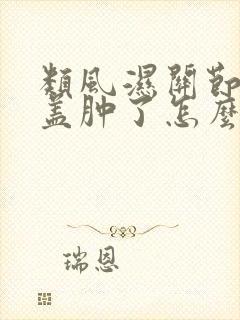 類風濕關節
蓋肿了怎麼
瑞恩